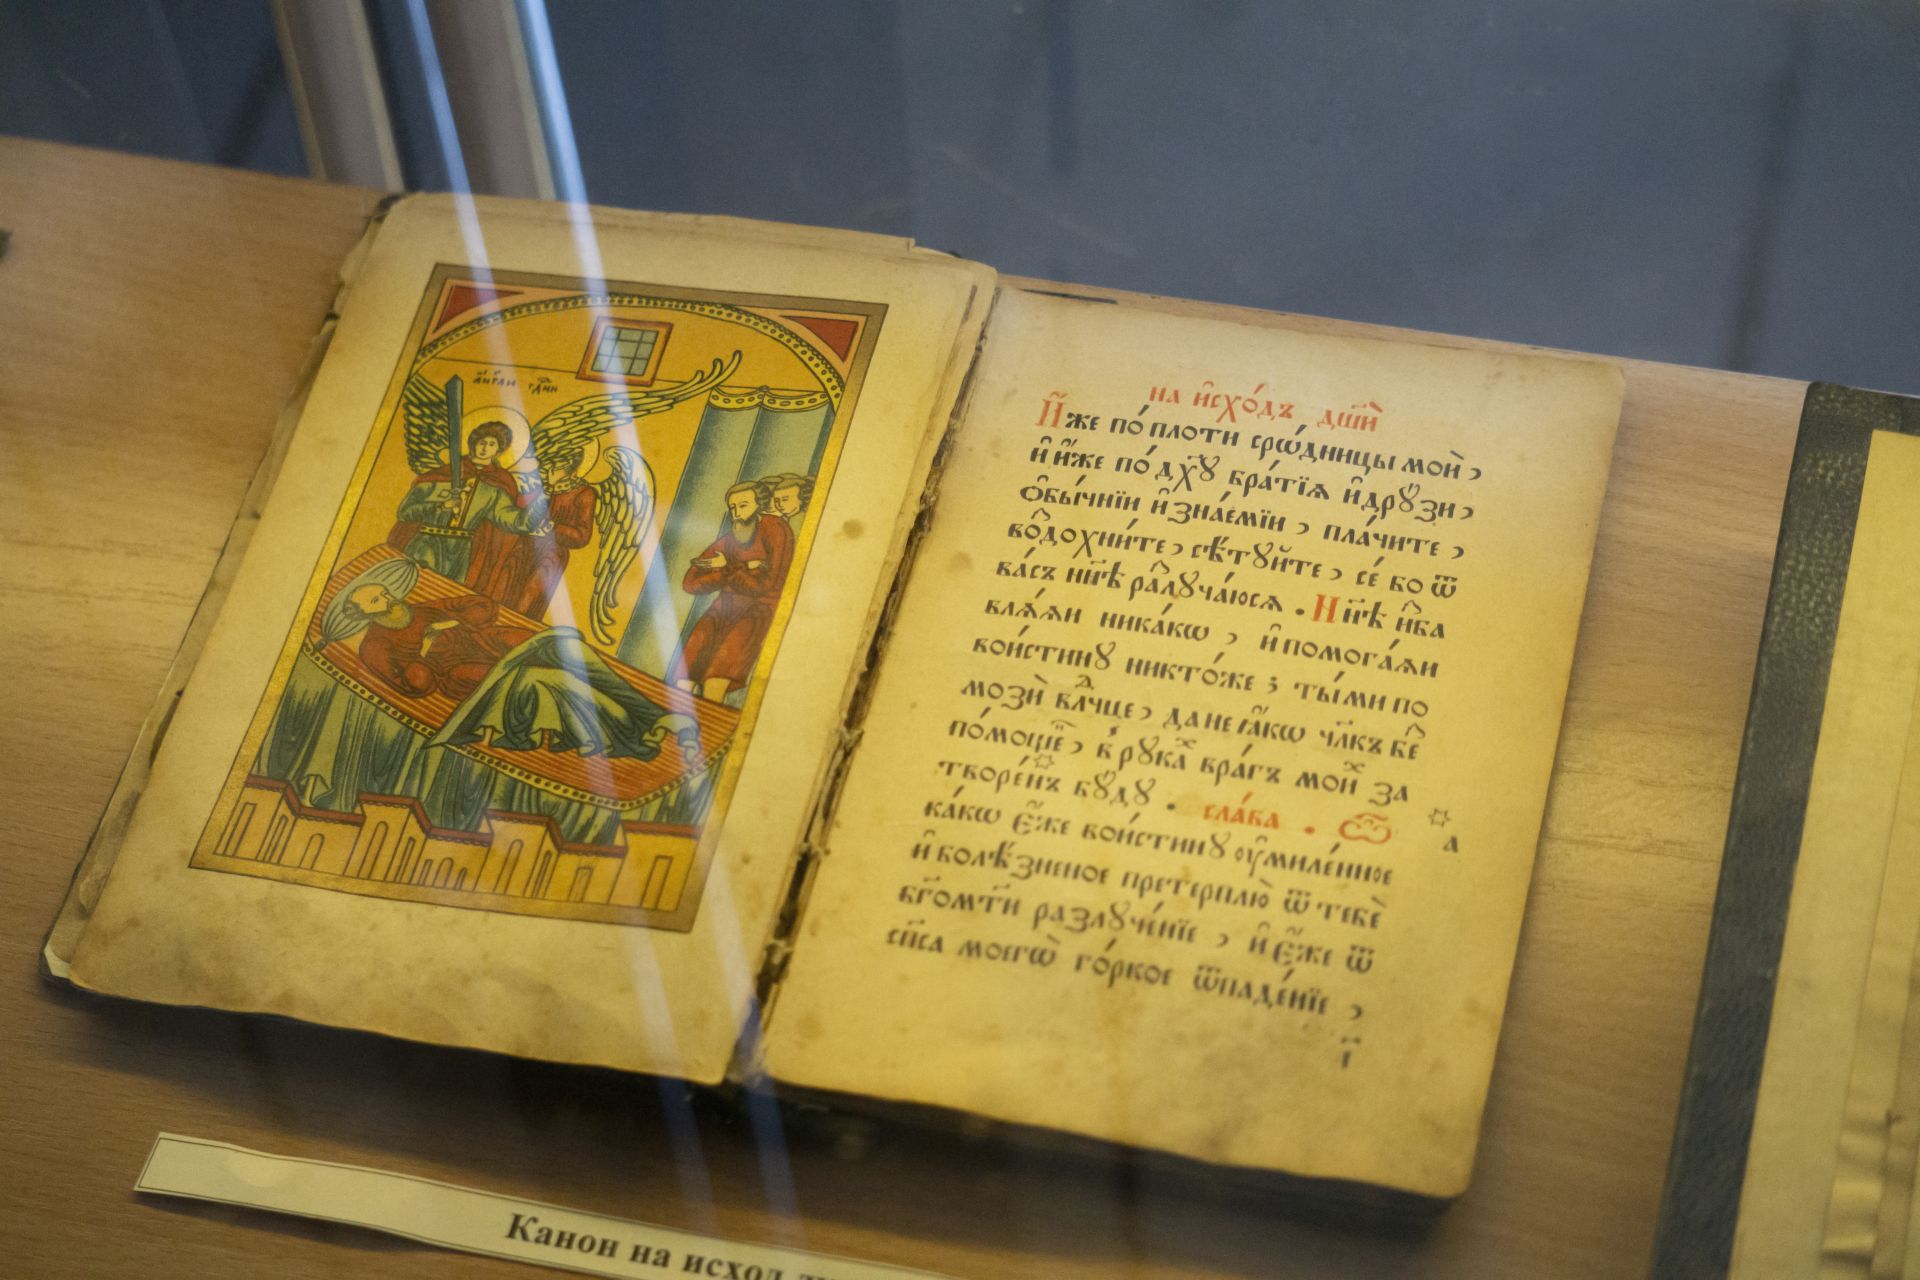 а҆́нг҃ли гдⷭ҇ни
на и҆схо́дъ дш҃и̑
И҆̀же по́ плоти срѡ́дницы мои̑ ,
и҆ и҆̀же по́ дх҃ꙋ бра́тїѧ и҆ дрꙋ́зи ,
ѻ҆бы́чнїи и҆ зна́емїи , пла́чите ,
во̑дохни́те , сѣ́тꙋйте , се́ бо ѿ
ва́съ нн҃ѣ ра̑лꙋча́юсѧ . Нн҃ѣ и҆̑ба
влѧ́ѧи ника́кѡ , и҆ помога́ѧи
вои́стинꙋ никто́же ; ты́ ми по
мози̑ влⷣчце , да не ꙗ҆́кѡ чл҃къ бе̑
по́мощи , в̾ рꙋкаⷯ вра́гъ моиⷯ за
творе́нъ бꙋ́дꙋ . сла́ва .
ка́кѡ є҆́же вои́стинꙋ оу҆миле́нное
и҆ болѣ́зненое претерплю̀ ѿ тебѐ
бг҃омт҃и разлꙋче́нїе , и҆ є҆́же ѿ
сп҃са моегѡ̀ го́ркое ѿпаде́нїе ,
а
і҃
Канон на исход